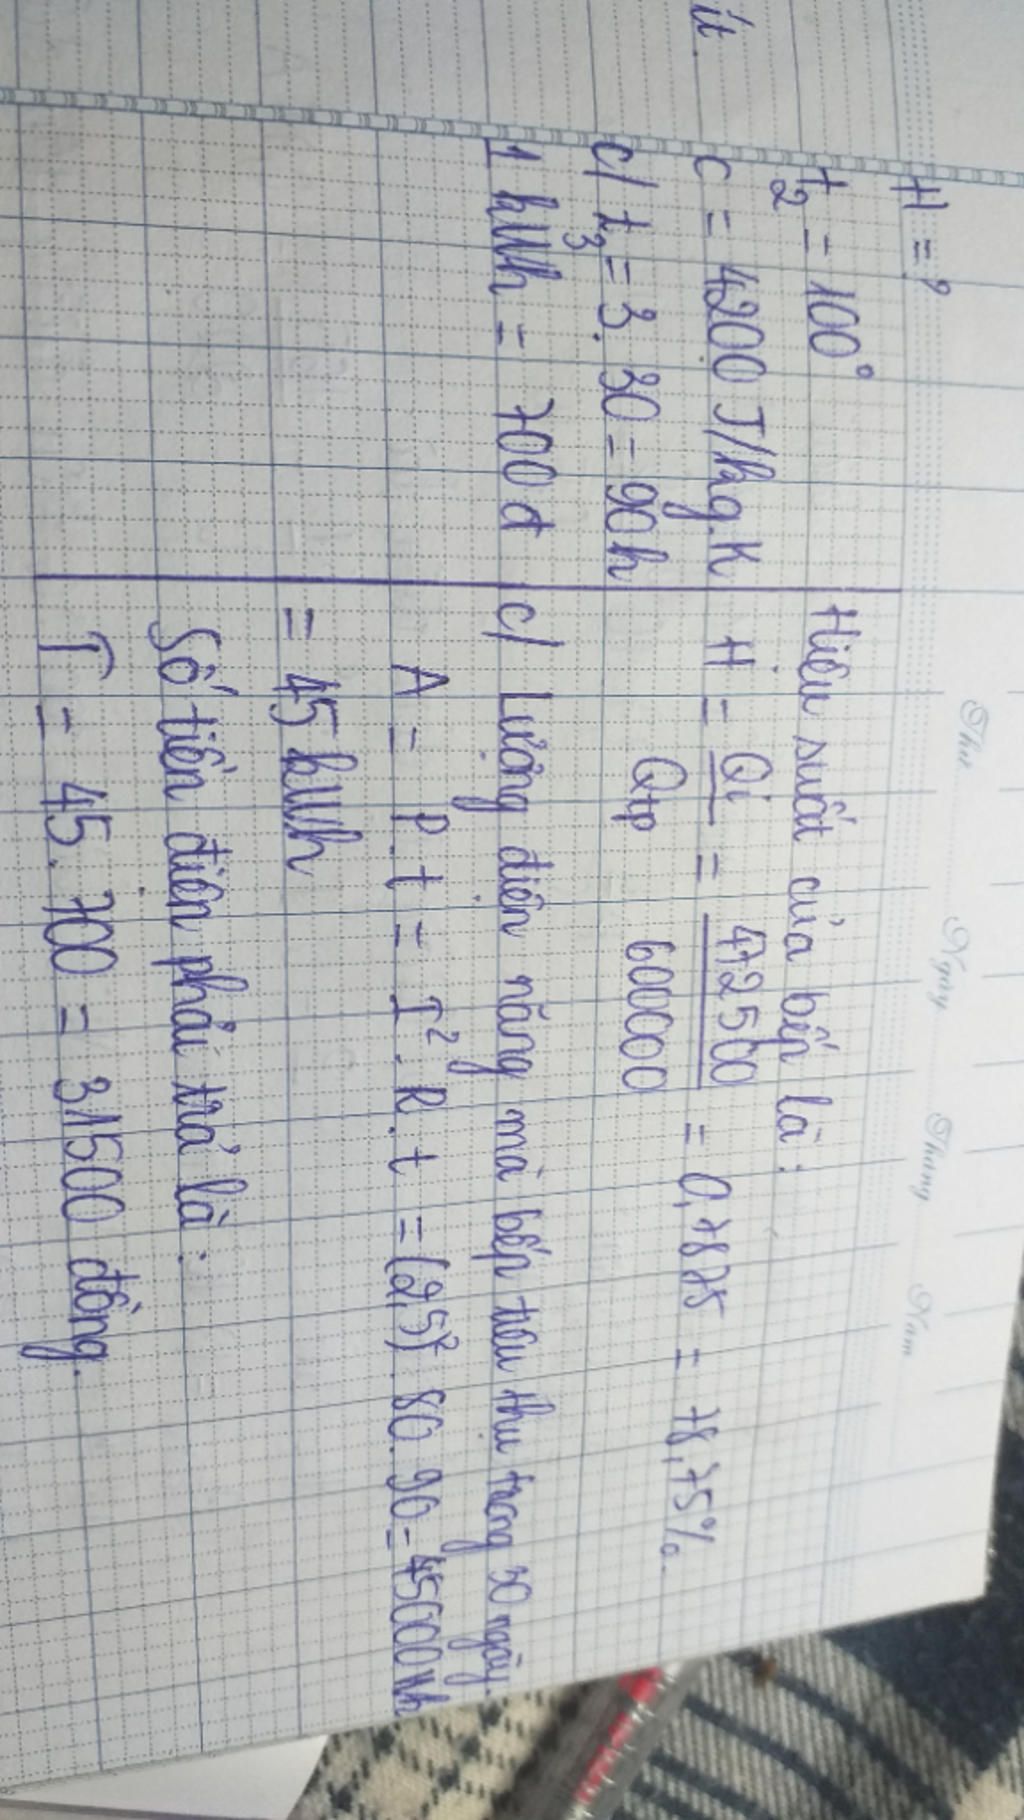 ít.
Thứ Ngày Tháng Năm
H = ?
t₂ = 100°
C = 4200 J/kg.K
c/ t₃ = 3. 30 = 90h
1 kWh = 700đ
Hiệu suất của bếp là:
H = Qi / Qtp = 472500 / 600000 = 0,7875 = 78,75%.
c/ Lượng điện năng mà bếp tiêu thụ trong 30 ngày.
A = P.t = I².R.t = (2,5)². 80. 90 = 45000 Wh
= 45 kWh
Số tiền điện phải trả là:
T = 45. 700 = 31500 đồng.